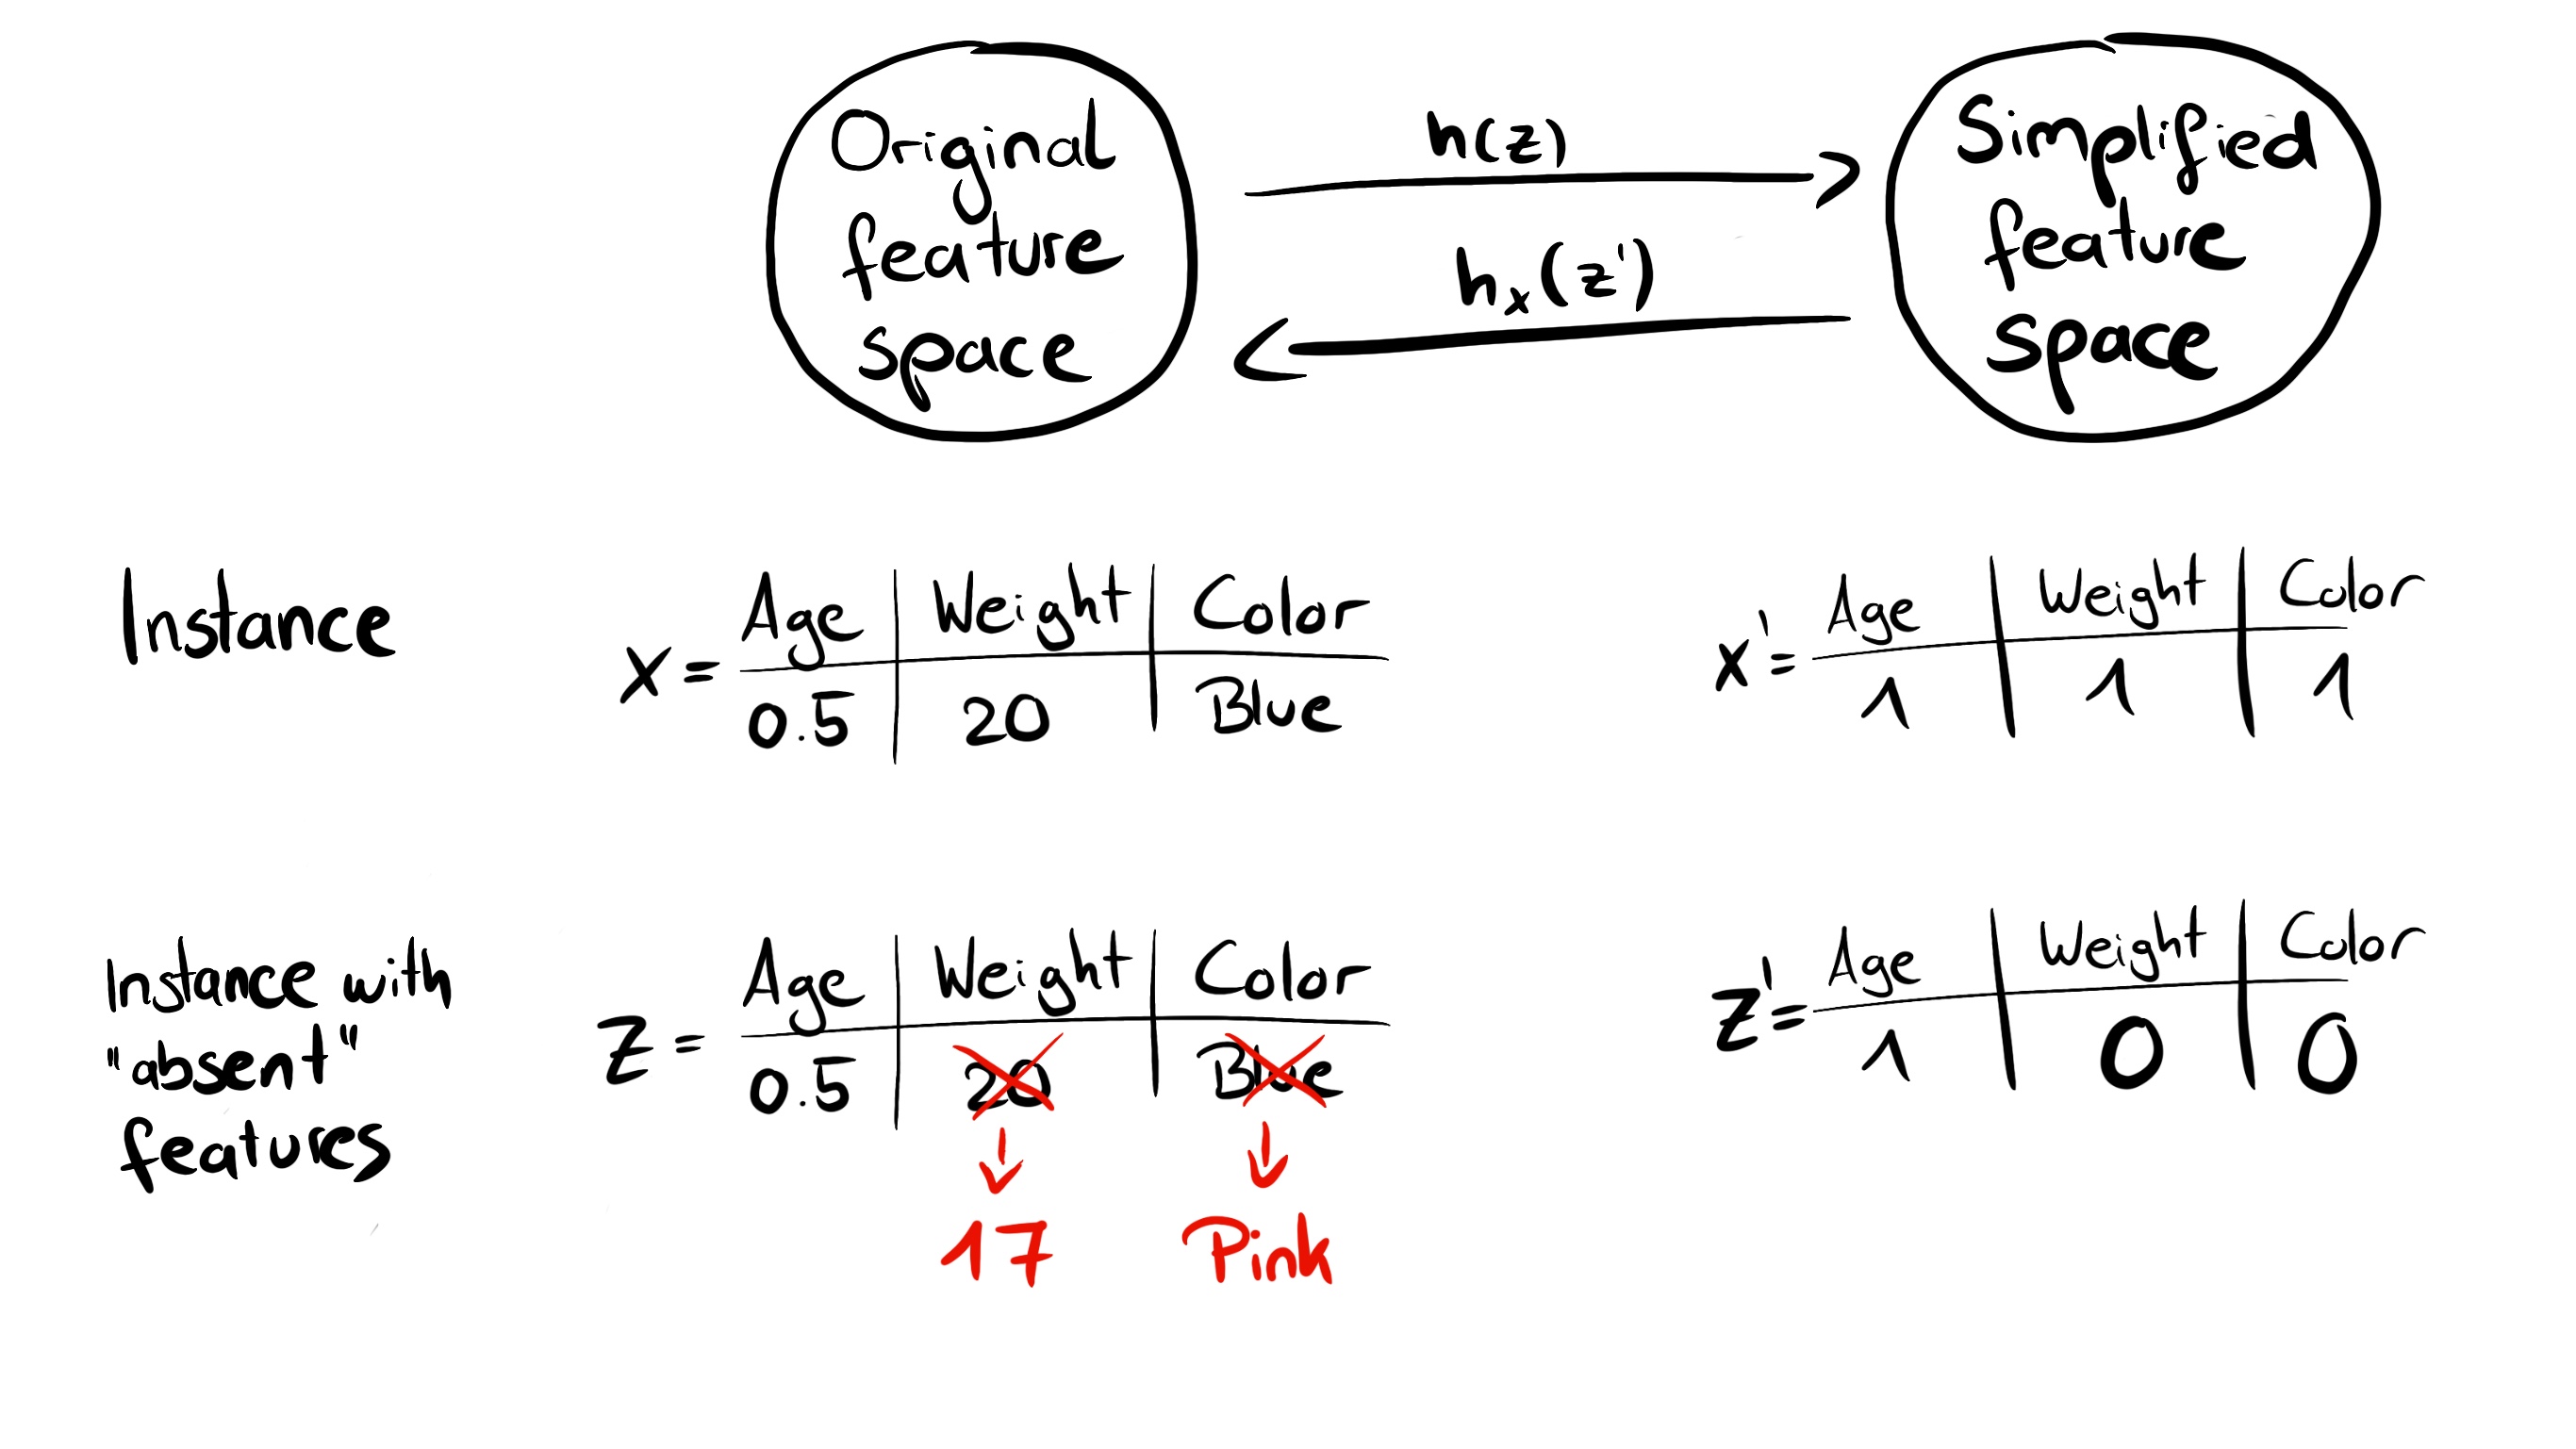 Original
feature
space
h(z)
hx(z')
Simplified
feature
space
Instance
x =
Age Weight Color
0.5 20 Blue
x' =
Age Weight Color
1 1 1
Instance with
"absent"
features
z =
Age Weight Color
0.5 20 Blue
17 Pink
z' =
Age Weight Color
1 0 0